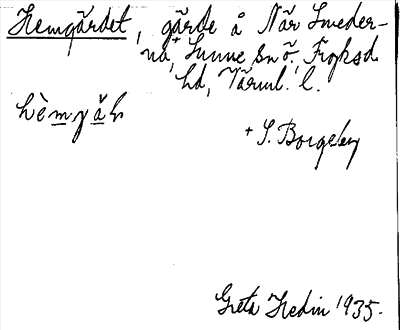 Hemgärdet, gärde å När Sweder-
na, Sunne sn ö., Fryksd.
hd, Värml. l.
hèmjäh
+ S. Borgeby
Greta Hedin 1935.